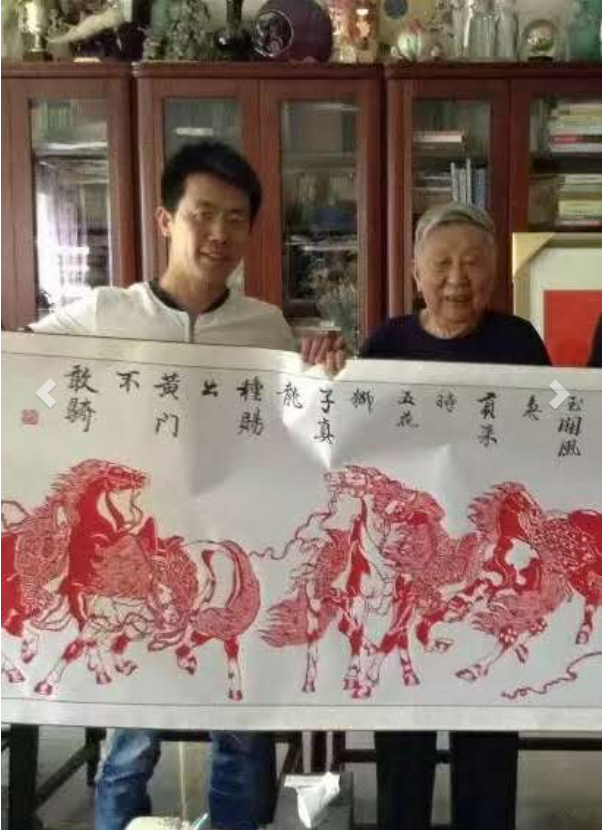 玉關風
貢來
時
五花
獅
子真
龍
種賜
出
黃門
不
敢騎